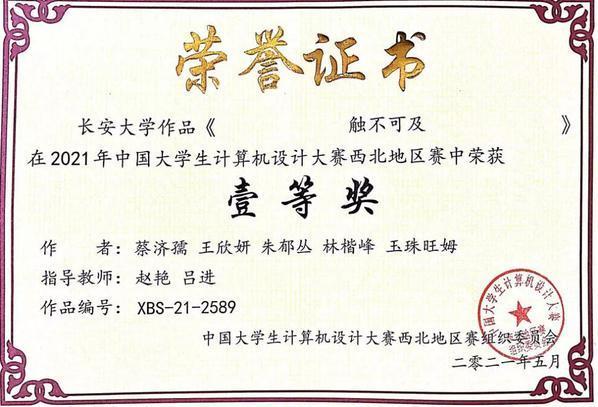 荣誉证书
长安大学作品《 触不可及 》
在2021年中国大学生计算机设计大赛西北地区赛中荣获
壹等奖
作 者:蔡济孺 王欣妍 朱郁丛 林楷峰 玉珠旺姆
指导教师:赵艳 吕进
作品编号:XBS-21-2589
中国大学生计算机设计大赛西北地区赛组织委员会
二零二一年五月
中国大学生计算机设计大赛
组织委员会